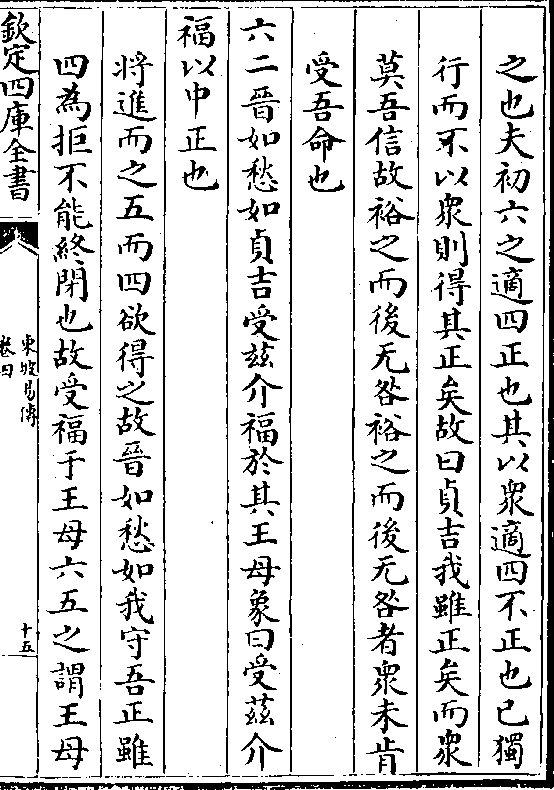 之也夫初六之適四正也其以衆適四不正也已獨
行而不以衆則得其正矣故曰貞吉我雖正矣而衆
莫吾信故裕之而後无咎裕之而後无咎者衆未肯
受吾命也
六二晉如愁如貞吉受兹介福於其王母象曰受兹介
福以中正也
將進而之五而四欲得之故晉如愁如我守吾正雖
四為拒不能終閉也故受福于王母六五之謂王母
欽定四庫全書
東坡易傳
卷四
十五